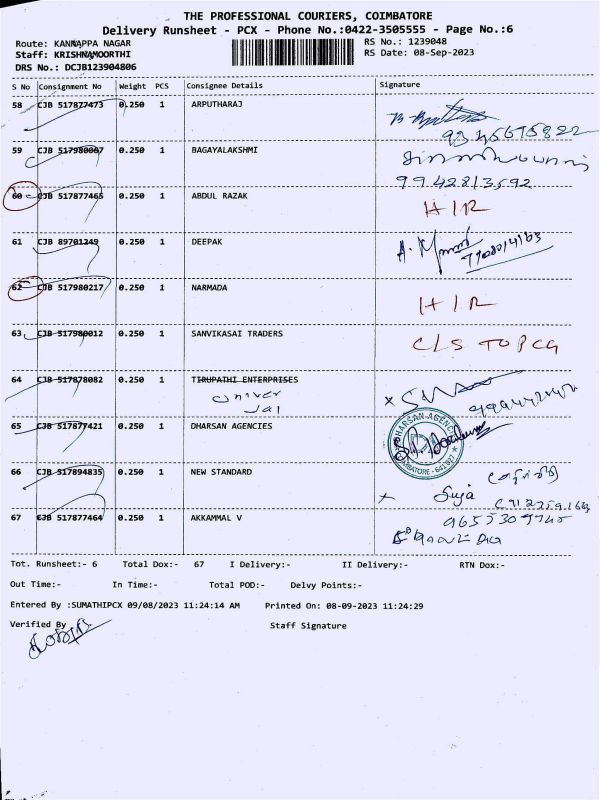 THE PROFESSIONAL COURIERS, COIMBATORE
Delivery Runsheet - PCX - Phone No.:0422-3505555 - Page No.:6
Route: KANNAPPA NAGAR
RS No.: 1239048
Staff: KRISHNAMOORTHI
RS Date: 08-Sep-2023
DRS No.: DCJB123904806
S No Consignment No Weight PCS Consignee Details Signature
58 CJB 517877473 0.250 1 ARPUTHARAJ
59 CJB 517980067 0.250 1 BAGAYALAKSHMI
9942813592
60 CJB 517877465 0.250 1 ABDUL RAZAK H/R
61 CJB 89701249 0.250 1 DEEPAK
62 CJB 517980217 0.250 1 NARMADA H/R
63 CJB 517980012 0.250 1 SANVIKASAI TRADERS C/S TO PCG
64 CJB 517878082 0.250 1 TIRUPATHI ENTERPRISES
65 CJB 517877421 0.250 1 DHARSAN AGENCIES
DHARSAN AGENCIES
COIMBATORE - 641 027
66 CJB 517894835 0.250 1 NEW STANDARD
Suja
67 CJB 517877464 0.250 1 AKKAMMAL V
Tot. Runsheet:- 6 Total Dox:- 67 I Delivery:- II Delivery:- RTN Dox:-
Out Time:- In Time:- Total POD:- Delvy Points:-
Entered By :SUMATHIPCX 09/08/2023 11:24:14 AM Printed On: 08-09-2023 11:24:29
Verified By Staff Signature